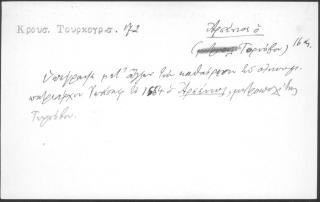 Κρουσ. Τουρκογρ. 172
Ἀρσένιος ὁ
Τορνόβου) 16 αἰ.
Ὑπέγραψε μετ' ἄλλων τὴν καθαίρεσιν τοῦ οἰκουμ.
πατριάρχου Ἰωάσαφ τὸ 1564 ὁ Ἀρσένιος, μητροπολίτης
Τορνόβου.